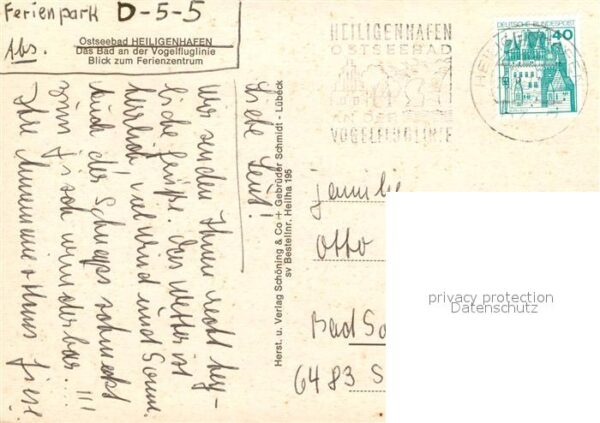 Ferienpark D-5-5
Abs.
Ostseebad HEILIGENHAFEN
Das Bad an der Vogelfluglinie
Blick zum Ferienzentrum
Liebe Leut!
Wir senden Ihnen recht herz-
liche Grüße. Das Wetter ist
herrlich, viel Wind und Sonne.
Auch der Schnaps schmeckt
zum Fisch wunderbar... !!!
Ihre Annemarie + Hans
Herst. u. Verlag Schöning & Co + Gebrüder Schmidt - Lübeck
sv Bestellnr. Heilha 195
HEILIGENHAFEN
OSTSEEBAD
AN DER
VOGELFLUGLINIE
DEUTSCHE BUNDESPOST
40
Familie
Otto
Bad So
6483 S
privacy protection
Datenschutz